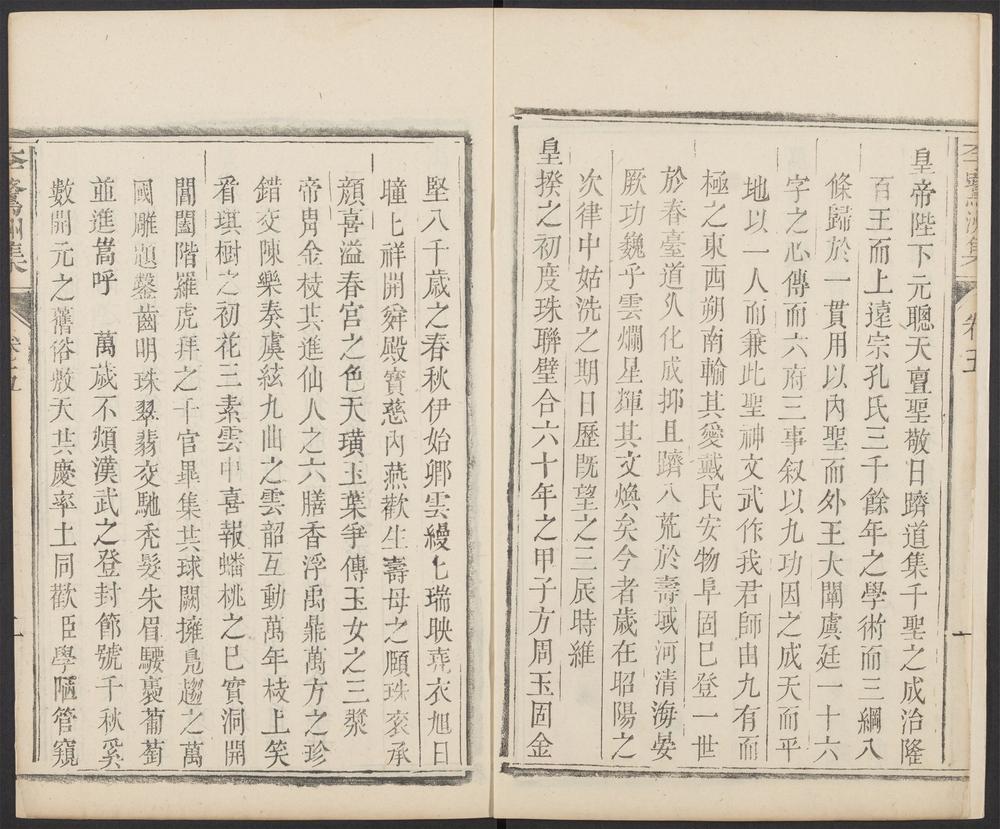 李鷺洲集
卷五
一
皇帝陛下元聰天亶聖敬日躋道集千聖之成治隆
百王而上遠宗孔氏三千餘年之學術而三綱八
條歸於一貫用以內聖而外王大闡虞廷一十六
字之心傳而六府三事叙以九功因之成天而平
地以一人而兼此聖神文武作我君師由九有而
極之東西朔南輸其愛戴民安物阜固已登一世
於春臺道久化成抑且躋八荒於壽域河清海晏
厥功巍乎雲爛星輝其文煥矣今者歲在昭陽之
次律中姑洗之期日歷既望之三辰時維
皇揆之初度珠聯璧合六十年之甲子方周玉固金
堅八千歲之春秋伊始卿雲縵匕瑞映堯衣旭日
曈匕祥開舜殿寶慈內燕歡生壽母之頤珠衮承
顏喜溢春宮之色天璜玉葉爭傳玉女之三漿
帝胄金枝共進仙人之六膳香浮禹鼎萬方之珍
錯交陳樂奏虞絃九曲之雲韶互動萬年枝上笑
看琪樹之初花三素雲中喜報蟠桃之已實洞開
閶闔階羅虎拜之千官畢集共球闕擁鳧趨之萬
國雕題鑿齒明珠翠翡交馳禿髮朱眉騕褭葡萄
並進嵩呼 萬歲不煩漢武之登封節號千秋奚
數開元之舊俗敷天共慶率土同歡臣學陋管窺
李鷺洲集
卷五
二